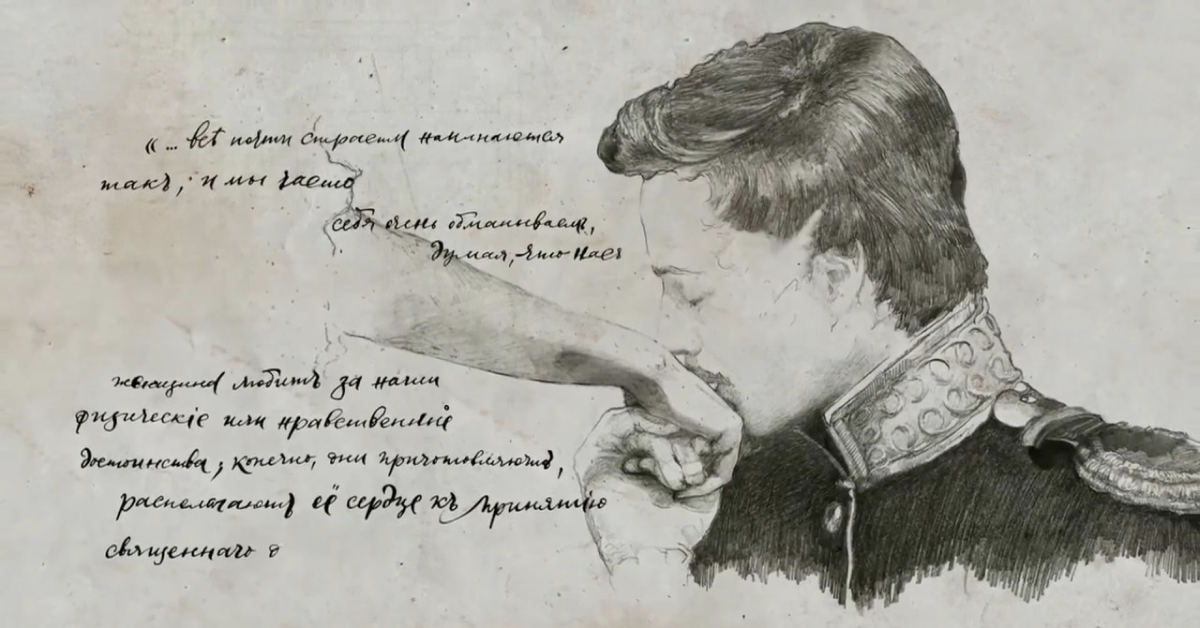 «... всѣ почти страсти начинаются
такъ, и мы часто
себя очень обманываемъ,
думая, что насъ
женщина любитъ за наши
физическіе или нравственные
достоинства; конечно, они приготовляютъ,
располагаютъ её сердце къ принятію
священнаго о